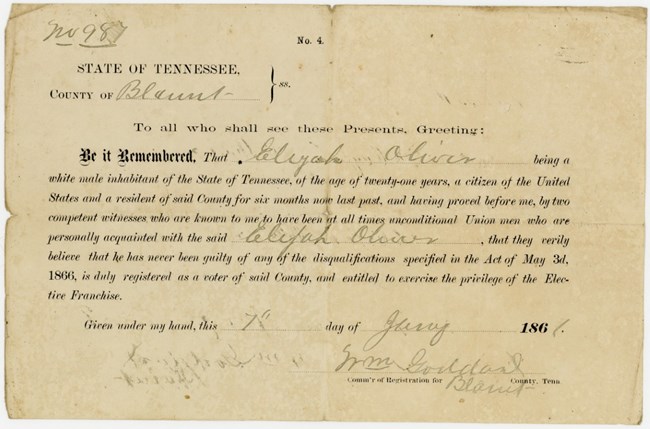 No 987
No. 4.
STATE OF TENNESSEE,
COUNTY OF Blount } ss.
To all who shall see these Presents. Greeting:
Be it Remembered, That Elijah Oliver being a
white male inhabitant of the State of Tennessee, of the age of twenty-one years, a citizen of the United
States and a resident of said County for six months now last past, and having proved before me, by two
competent witnesses, who are known to me to have been at all times unconditional Union men who are
personally acquainted with the said Elijah Oliver, that they verily
believe that he has never been guilty of any of the disqualifications specified in the Act of May 3d,
1866, is duly registered as a voter of said County, and entitled to exercise the privilege of the Elec-
tive Franchise.
Given under my hand, this 7th day of Jany 186
Wm Goddard
Comm'r of Registration for Blount County, Tenn